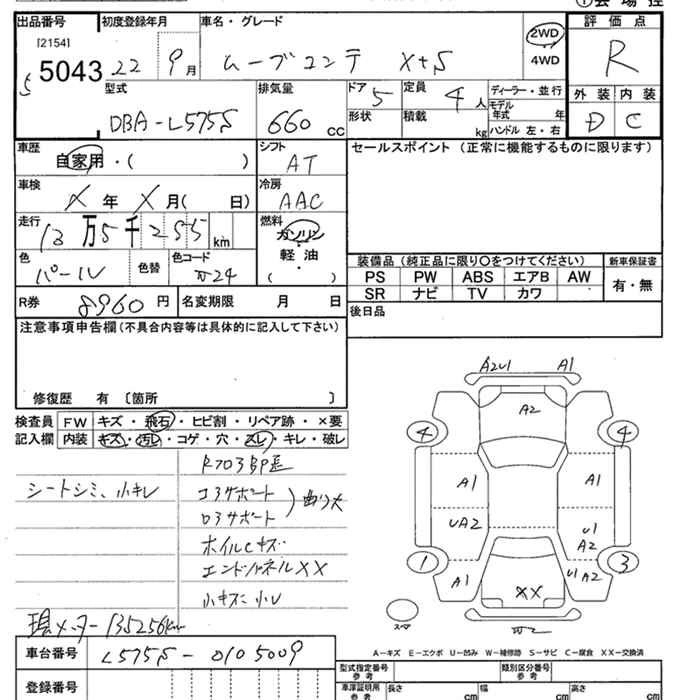 出品番号 初度登録年月 車名・グレード 評価点
[2154]
5043 22 9月 ムーブコンテ X+S 2WD R
・
4WD
型式 排気量 ドア 5 定員 4人 ディーラー・並行 外装 内装
DBA-L575S 660 cc 形状 積載 kg モデル年式 年 D C
ハンドル 左・右
車歴 自家用・( ) シフト AT セールスポイント (正常に機能するものに限ります)
車検 X年 X月( 日) 冷房 AAC
走行 13万5千255km 燃料 ガソリン
色 パール 色替 色コード 軽油
( )
装備品 (純正品に限り○をつけてください) 新車保証書
PS PW ABS エアB AW 有・無
SR ナビ TV カワ
R券 8960円 名変期限 月 日
後日品
注意事項申告欄(不具合内容等は具体的に記入して下さい)
修復歴 有 〔箇所 〕
検査員 FW キズ・飛石・ヒビ割・リペア跡・×要
記入欄 内装 キズ・汚レ・コゲ・穴・スレ・キレ・破レ
シートシミ、小キレ
コアサポート
ロアサポート
ホイルキズ
エンドパネルXX
小キズ 小U
現メーター135256km
車台番号 L575S-0105009
登録番号
A2U1 A1
A2
4 4
A1 A1
UA2 U1
A2
1 3
A1 U1 A2
XX
スマ
A-キズ E-エクボ U-凹み W-補修跡 S-サビ C-腐食 XX-交換済
型式指定番号 参考 類別区分番号 参考
車庫証明用 参考 長さ cm 幅 cm 高さ cm